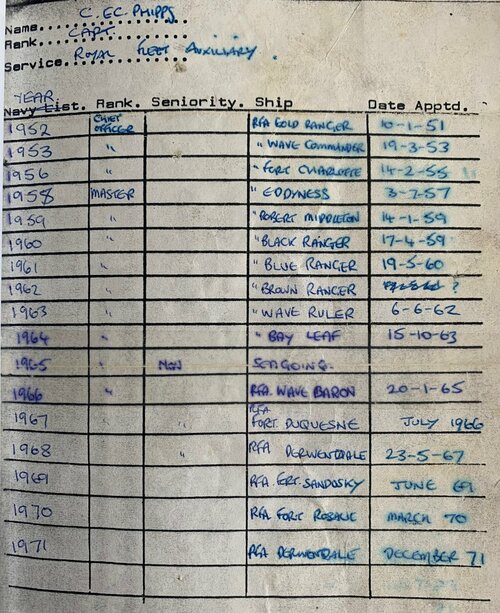 Name.... C. EC. PHIPPS
Rank.... CAPT.
Service. ROYAL FLEET AUXILIARY.
YEAR
Navy List. Rank. Seniority. Ship Date Apptd.
1952 CHIEF OFFICER RFA GOLD RANGER 10-1-51
1953 " " WAVE COMMANDER 19-3-53
1956 " " FORT CHARLOTTE 14-2-55
1958 MASTER " EDDYNESS 3-7-57
1959 " " ROBERT MIDDLETON 14-1-59
1960 " " BLACK RANGER 17-4-59
1961 " " BLUE RANGER 19-5-60
1962 " " BROWN RANGER ?
1963 " " WAVE RULER 6-6-62
1964 " " BAY LEAF 15-10-63
1965 " NON SEAGOING.
1966 " RFA WAVE BARON 20-1-65
1967 " " RFA FORT DUQUESNE JULY 1966
1968 " RFA DERWENTDALE 23-5-67
1969 RFA FORT. SANDUSKY JUNE 69
1970 RFA FORT ROSALIE MARCH 70
1971 RFA DERWENTDALE DECEMBER 71